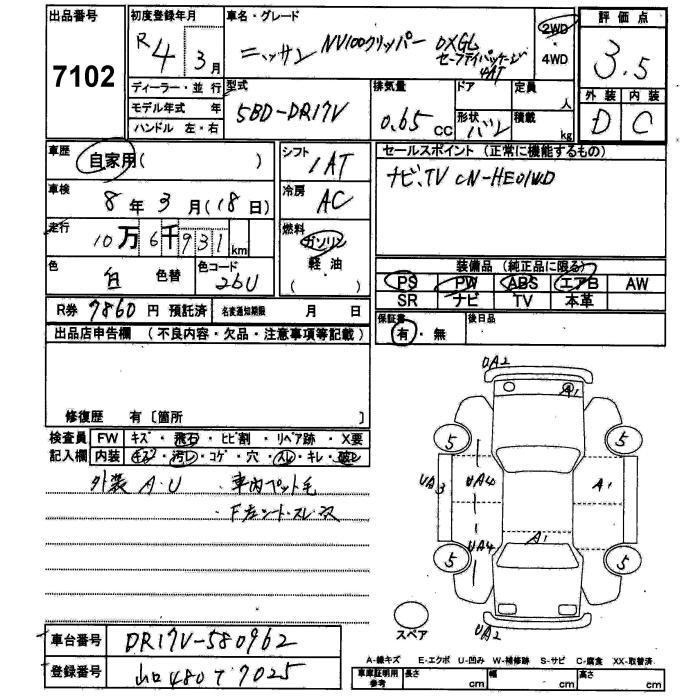 出品番号
7102
初度登録年月
R4 3月
車名・グレード
ニッサン NV100クリッパー DXGL
セーフティパッケージ
4AT
2WD
・
4WD
評価点
3.5
外装 内装
D C
ディーラー・並行
モデル年式 年
ハンドル 左・右
型式
5BD-DR17V
排気量
0.65 CC
ドア
形状 バン
定員
人
積載
kg
車歴
自家用( )
シフト
1AT
セールスポイント (正常に機能するもの)
ナビ、TV CN-HE01WD
車検
8年 3月(18日)
冷房
AC
走行
10万6千931km
燃料
ガソリン
軽・油
( ・ )
色
白 色替
色コード
26U
装備品 (純正品に限る)
PS PW ABS エアB AW
SR ナビ TV 本革
R券 7860 円 預託済
名変通知期限 月 日
保証書
有・無
後日品
出品店申告欄 (不良内容・欠品・注意事項等記載)
修復歴 有〔箇所 〕
検査員 FW キズ・飛石・ヒビ割・リペア跡・X要
記入欄 内装 キズ・汚レ・コゲ・穴・スレ・キレ・破レ
外装 A・U ・車内ペット毛
・F左シート・スレ
UA2
A1
5 5
UA3 UA4 A1
UA4 A1
5 5
UA2
スペア
A-線キズ E-エクボ U-凹み W-補修跡 S-サビ C-腐食 XX-取替済
車台番号 DR17V-580962
登録番号 山口 480 て 7025
車庫証明用
参考
長さ cm 幅 cm 高さ cm